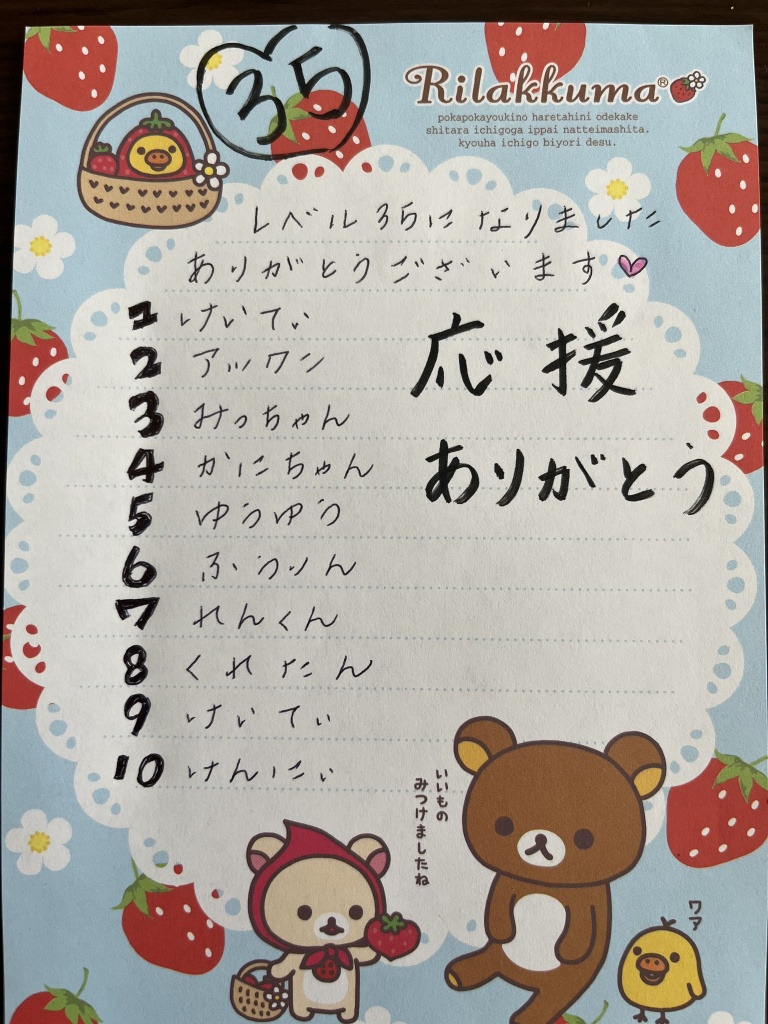 35
Rilakkuma®
pokapokayoukino haretahini odekake
shitara ichigoga ippai natteimashita.
kyouha ichigo biyori desu.
レベル35になりました
ありがとうございます♡
1 けいてぃ
2 アッワン
3 みっちゃん
4 かにちゃん
5 ゆうゆう
6 ふうりん
7 れんくん
8 くれたん
9 けいてぃ
10 けんにぃ
応援
ありがとう
いいもの
みつけましたね
ワァ